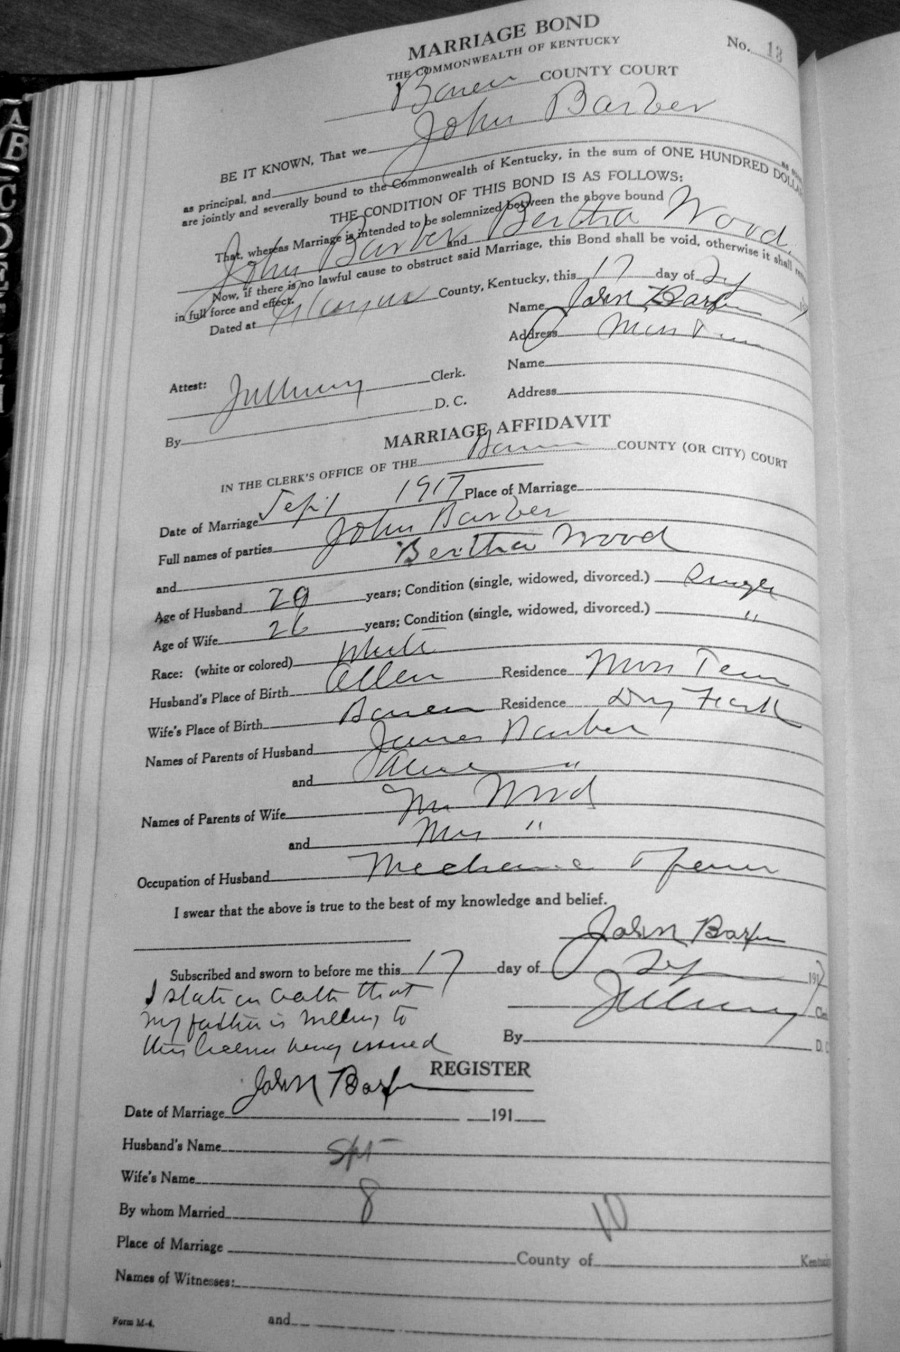 MARRIAGE BOND
No. 13
THE COMMONWEALTH OF KENTUCKY
Barren COUNTY COURT
BE IT KNOWN, That we John Barber
as principal, and
are jointly and severally bound to the Commonwealth of Kentucky, in the sum of ONE HUNDRED
THE CONDITION OF THIS BOND IS AS FOLLOWS:
That, whereas Marriage is intended to be solemnized between the above bound
John Barber and Bertha Wood
Now, if there is no lawful cause to obstruct said Marriage, this Bond shall be void, otherwise it shall
in full force and effect.
Dated at Glasgow County, Kentucky, this 17 day of
Name John Barber
Address
Name
Attest: Clerk.
Address
D. C.
By
MARRIAGE AFFIDAVIT
IN THE CLERK'S OFFICE OF THE Barren COUNTY (OR CITY) COURT
Date of Marriage 1917 Place of Marriage
Full names of parties John Barber
and Bertha Wood
Age of Husband 29 years; Condition (single, widowed, divorced.) Single
Age of Wife 26 years; Condition (single, widowed, divorced.) "
Race: (white or colored) White
Husband's Place of Birth Allen Residence Tenn
Wife's Place of Birth Barren Residence Dry Fork
Names of Parents of Husband James Barber
and "
Names of Parents of Wife Mr Wood
and Mrs "
Occupation of Husband
I swear that the above is true to the best of my knowledge and belief.
John Barber
Subscribed and sworn to before me this 17 day of 1917
I state on oath that
my father is willing to
this license being issued
By D. C
REGISTER
John Barber
Date of Marriage 191
Husband's Name
Wife's Name
By whom Married 8 10
Place of Marriage County of Kentucky
Names of Witnesses:
Form M-4. and